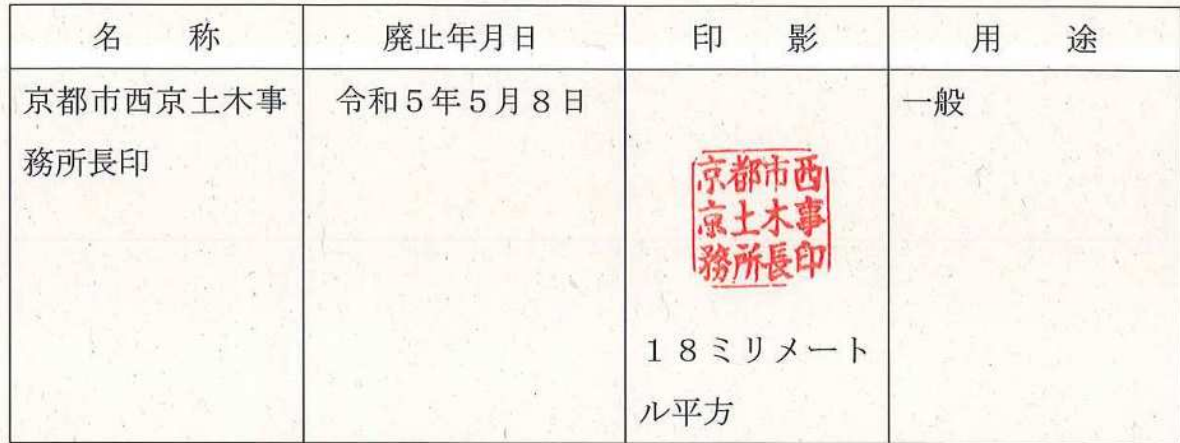 名称 廃止年月日 印影 用途
京都市西京土木事
務所長印
令和5年5月8日
京都市西
京土木事
務所長印
18ミリメート
ル平方
一般